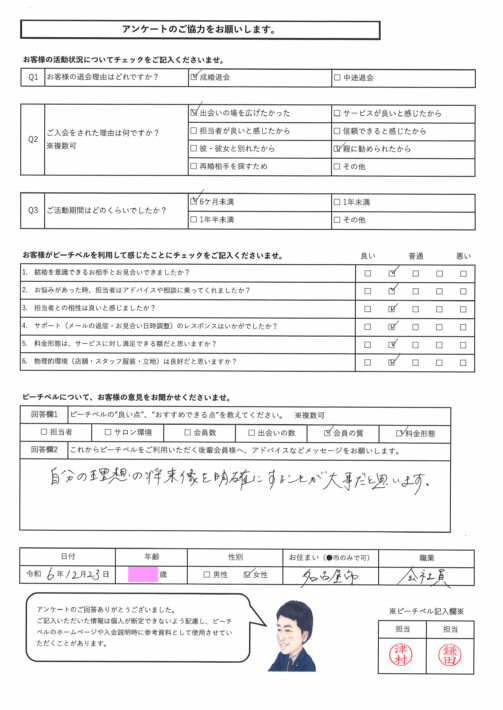 アンケートのご協力をお願いします。
お客様の活動状況についてチェックをご記入くださいませ。
Q1 お客様の退会理由はどれですか？ ☑成婚退会 □中途退会
Q2 ご入会をされた理由は何ですか？ ※複数可
☑出会いの場を広げたかった □サービスが良いと感じたから
□担当者が良いと感じたから □信頼できると感じたから
□彼・彼女と別れたから ☑親に勧められたから
□再婚相手を探すため □その他
Q3 ご活動期間はどのくらいでしたか？
☑6ケ月未満 □1年未満
□1年半未満 □その他
お客様がピーチベルを利用して感じたことにチェックをご記入くださいませ。 良い 普通 悪い
1. 結婚を意識できるお相手とお見合いできましたか？ □ ☑ □ □ □
2. お悩みがあった時、担当者はアドバイスや相談に乗ってくれましたか？ □ ☑ □ □ □
3. 担当者との相性は良いと感じましたか？ □ ☑ □ □ □
4. サポート（メールの返信・お見合い日時調整）のレスポンスはいかがでしたか？ □ ☑ □ □ □
5. 料金形態は、サービスに対し満足できる額だと思いますか？ □ ☑ □ □ □
6. 物理的環境（店舗・スタッフ服装・立地）は良好だと思いますか？ □ ☑ □ □ □
ピーチベルについて、お客様の意見をお聞かせくださいませ。
回答欄1 ピーチベルの“良い点”、“おすすめできる点”を教えてください。 ※複数可
□担当者 □サロン環境 □会員数 □出会いの数 ☑会員の質 ☑料金形態
回答欄2 これからピーチベルをご利用いただく後輩会員様へ、アドバイスなどメッセージをお願いします。
自分の理想の将来像を明確にすることが大事だと思います。
日付 年齢 性別 お住まい（●市のみで可） 職業
令和 6年12月23日 歳 □男性 ☑女性 名古屋市 会社員
アンケートのご回答ありがとうございました。
ご記入いただいた情報は個人が断定できないよう配慮し、ピーチ
ベルのホームページや入会説明時に参考資料として使用させてい
ただくことがあります。
※ピーチベル記入欄※
担当 担当
津村 鎌田